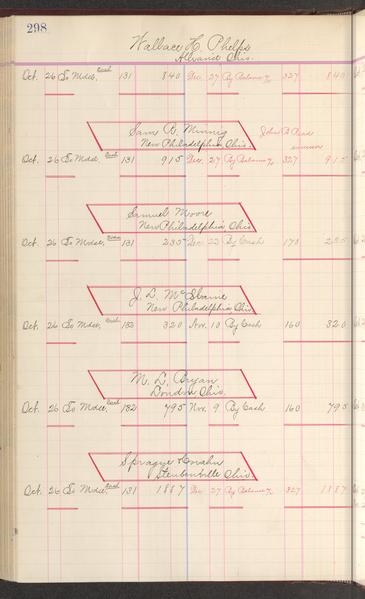 298
Wallace H. Phelps
Ohio.
Oct. 26 To Mdse. Cash 131 840 Dec. 27 By Balance 327 840
Sam B. Minnig
New Philadelphia, Ohio. John B.
Oct. 26 To Mdse. Cash 131 915 Dec. 27 By Balance 327 915
Samuel Moore
New Philadelphia, Ohio
Oct. 26 To Mdse. 131 235 Dec. 22 By Cash 173 235
J. L.
New Philadelphia, Ohio
Oct. 26 To Mdse. Cash 132 320 Nov. 10 By Cash 160 320
M. L. Bryan
London Ohio.
Oct. 26 To Mdse. Cash 132 795 Nov. 9 By Cash 160 795
Sprague
Steubenville Ohio
Oct. 26 To Mdse. Cash 131 1887 Dec 27 By Balance 327 1887